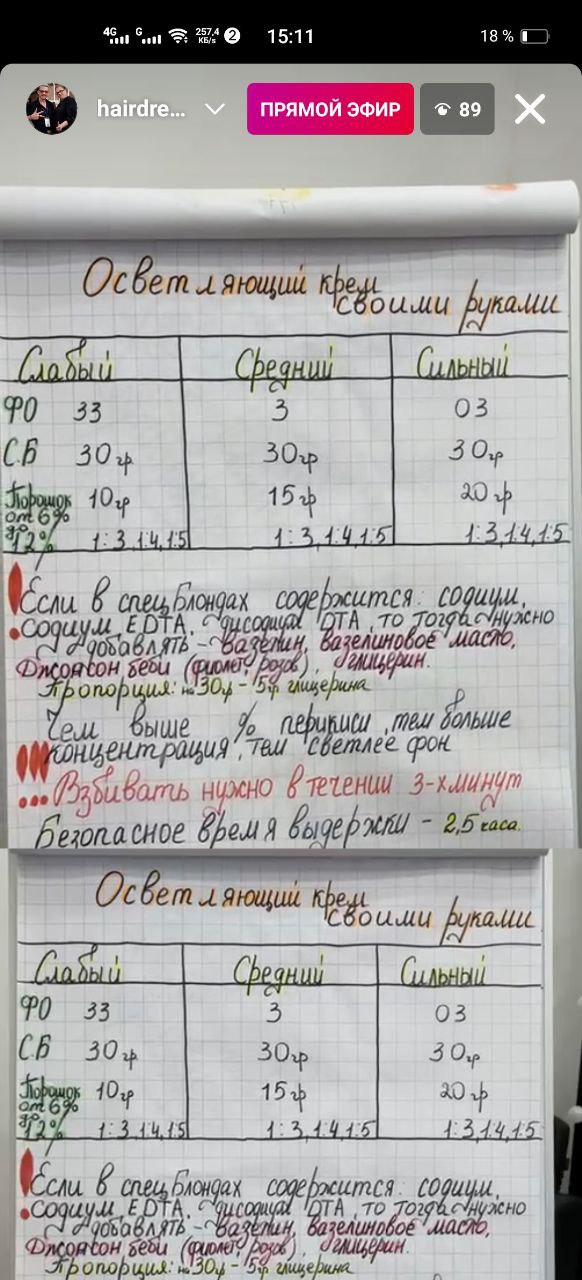 4G G 257,4 КБ/s 2 15:11 18 %
hairdre... ПРЯМОЙ ЭФИР 89
Осветляющий крем
своими руками
Слабый Средний Сильный
ФО 33 3 03
С.Б 30гр 30гр 30гр
Порошок 10гр 15гр 20гр
от 6%
до
12% 1:3,1:4,1:5 1:3,1:4,1:5 1:3,1:4,1:5
Если в спец.Блондах содержится: содиум,
содиум EDTA, дисодиум DTA, то тогда нужно
добавлять - Вазелин, вазелиновое масло,
Джонсон беби (фиолет, розов), глицерин.
Пропорция: на 30гр - 5гр глицерина
Чем выше % перикиси, тем больше
концентрация, тем светлее фон
... Взбивать нужно в течении 3-х минут
Безопасное время выдержки - 2,5 часа.
Осветляющий крем
своими руками
Слабый Средний Сильный
ФО 33 3 03
С.Б 30гр 30гр 30гр
Порошок 10гр 15гр 20гр
от 6%
до
12% 1:3,1:4,1:5 1:3,1:4,1:5 1:3,1:4,1:5
Если в спец.Блондах содержится: содиум,
содиум EDTA, дисодиум DTA, то тогда нужно
добавлять - Вазелин, вазелиновое масло,
Джонсон беби (фиолет, розов), глицерин.
Пропорция: на 30гр - 5гр глицерина